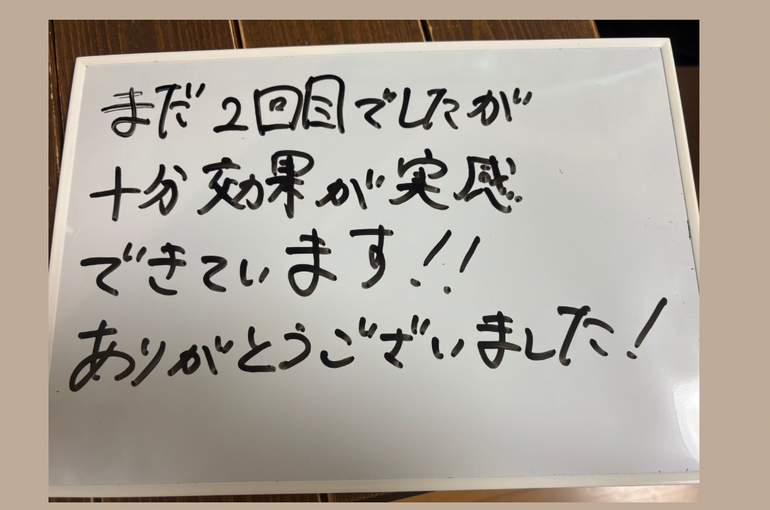 まだ2回目でしたが
十分効果が実感
できています!!
ありがとうございました!